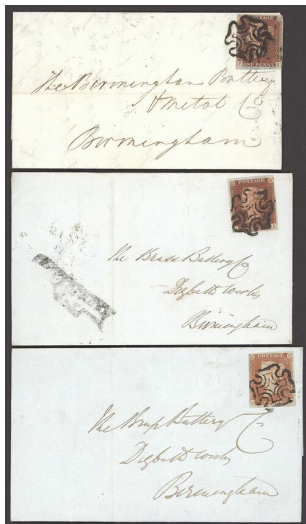 POSTAGE
ONE PENNY
The Birmingham Battery
& Metal Co
Birmingham
POSTAGE
The Brass Battery Co
Digbeth Works
Birmingham
POSTAGE
The Brass Battery Co
Digbeth Works
Birmingham